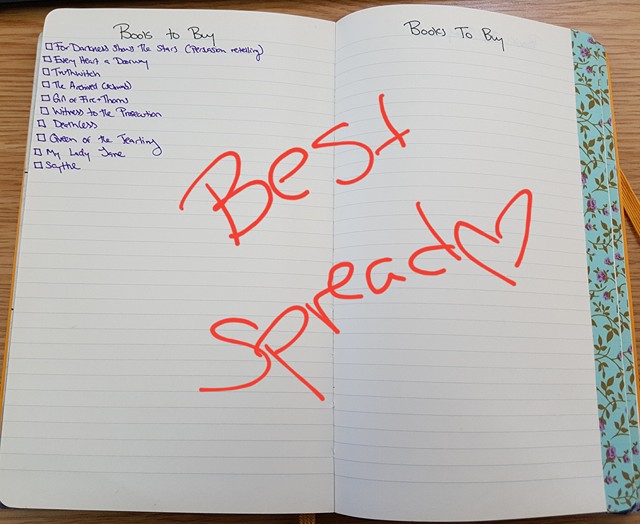 Books to Buy
For Darkness Shows The Stars (Persuasion retelling)
Every Heart a Doorway
Truthwitch
The Archived (Schwab)
Girl of Fire + Thorns
Witness to the Prosecution
Deathless
Queen of the Tearling
My Lady Jane
Scythe
Books To Buy
Best
Spread